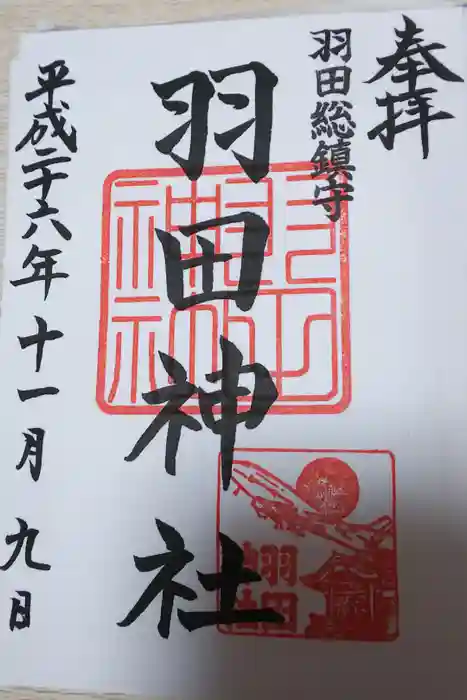 奉拝
羽田総鎮守
羽田神社
平成二十六年十一月九日
羽田神社